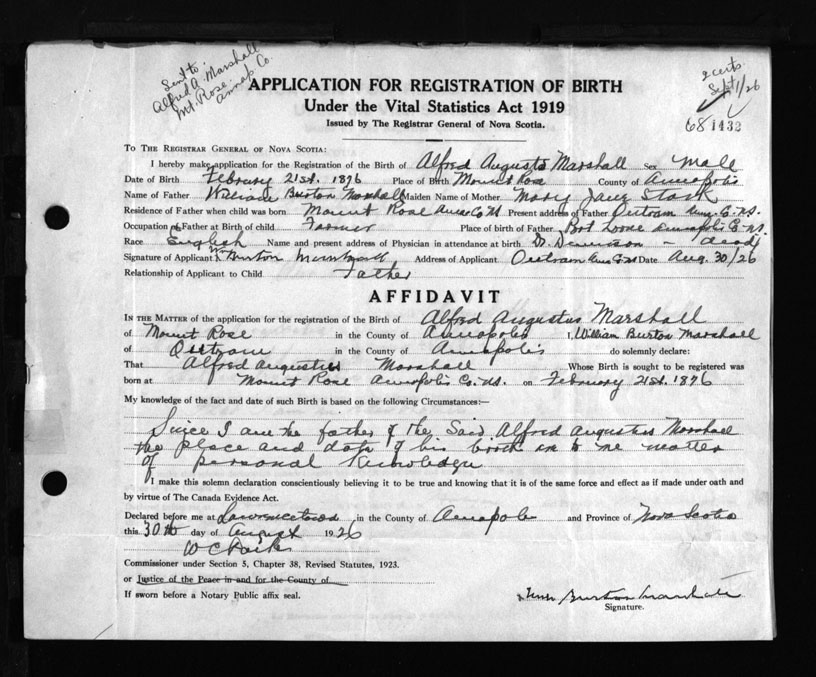 Sent to:
Alfred A. Marshall
Mt. Rose
Annap Co.
2 certs
Sept 1/26
681432
APPLICATION FOR REGISTRATION OF BIRTH
Under the Vital Statistics Act 1919
Issued by The Registrar General of Nova Scotia.
TO THE REGISTRAR GENERAL OF NOVA SCOTIA:
I hereby make application for the Registration of the Birth of Alfred Augustus Marshall Sex Male
Date of Birth February 21st. 1896 Place of Birth Mount Rose County of Annapolis
Name of Father William Burton Marshall Maiden Name of Mother Mary Jane Stark
Residence of Father when child was born Mount Rose Anna Co NS Present address of Father Outram Ann. Co. NS.
Occupation of Father at Birth of child Farmer Place of birth of Father Port Lorne Annapolis Co NS.
Race English Name and present address of Physician in attendance at birth Dr. - dead
Signature of Applicant Wm Burton Marshall Address of Applicant Outram Ann Co NS Date Aug. 30/26
Relationship of Applicant to Child Father
AFFIDAVIT
IN THE MATTER of the application for the registration of the Birth of Alfred Augustus Marshall
of Mount Rose in the County of Annapolis I, William Burton Marshall
of Outram in the County of Annapolis do solemnly declare:
That Alfred Augustus Marshall Whose Birth is sought to be registered was
born at Mount Rose Annapolis Co. NS. on February 21st. 1896
My knowledge of the fact and date of such Birth is based on the following Circumstances:—
Since I am the father of the said Alfred Augustus Marshall
the place and date of his birth is to me matter
of personal knowledge
I make this solemn declaration conscientiously believing it to be true and knowing that it is of the same force and effect as if made under oath and
by virtue of The Canada Evidence Act.
Declared before me at Lawrencetown in the County of Annapolis and Province of Nova Scotia
this 30th day of August 1926
W C Parker
Commissioner under Section 5, Chapter 38, Revised Statutes, 1923.
or Justice of the Peace in and for the County of
If sworn before a Notary Public affix seal.
Wm Burton Marshall
Signature.